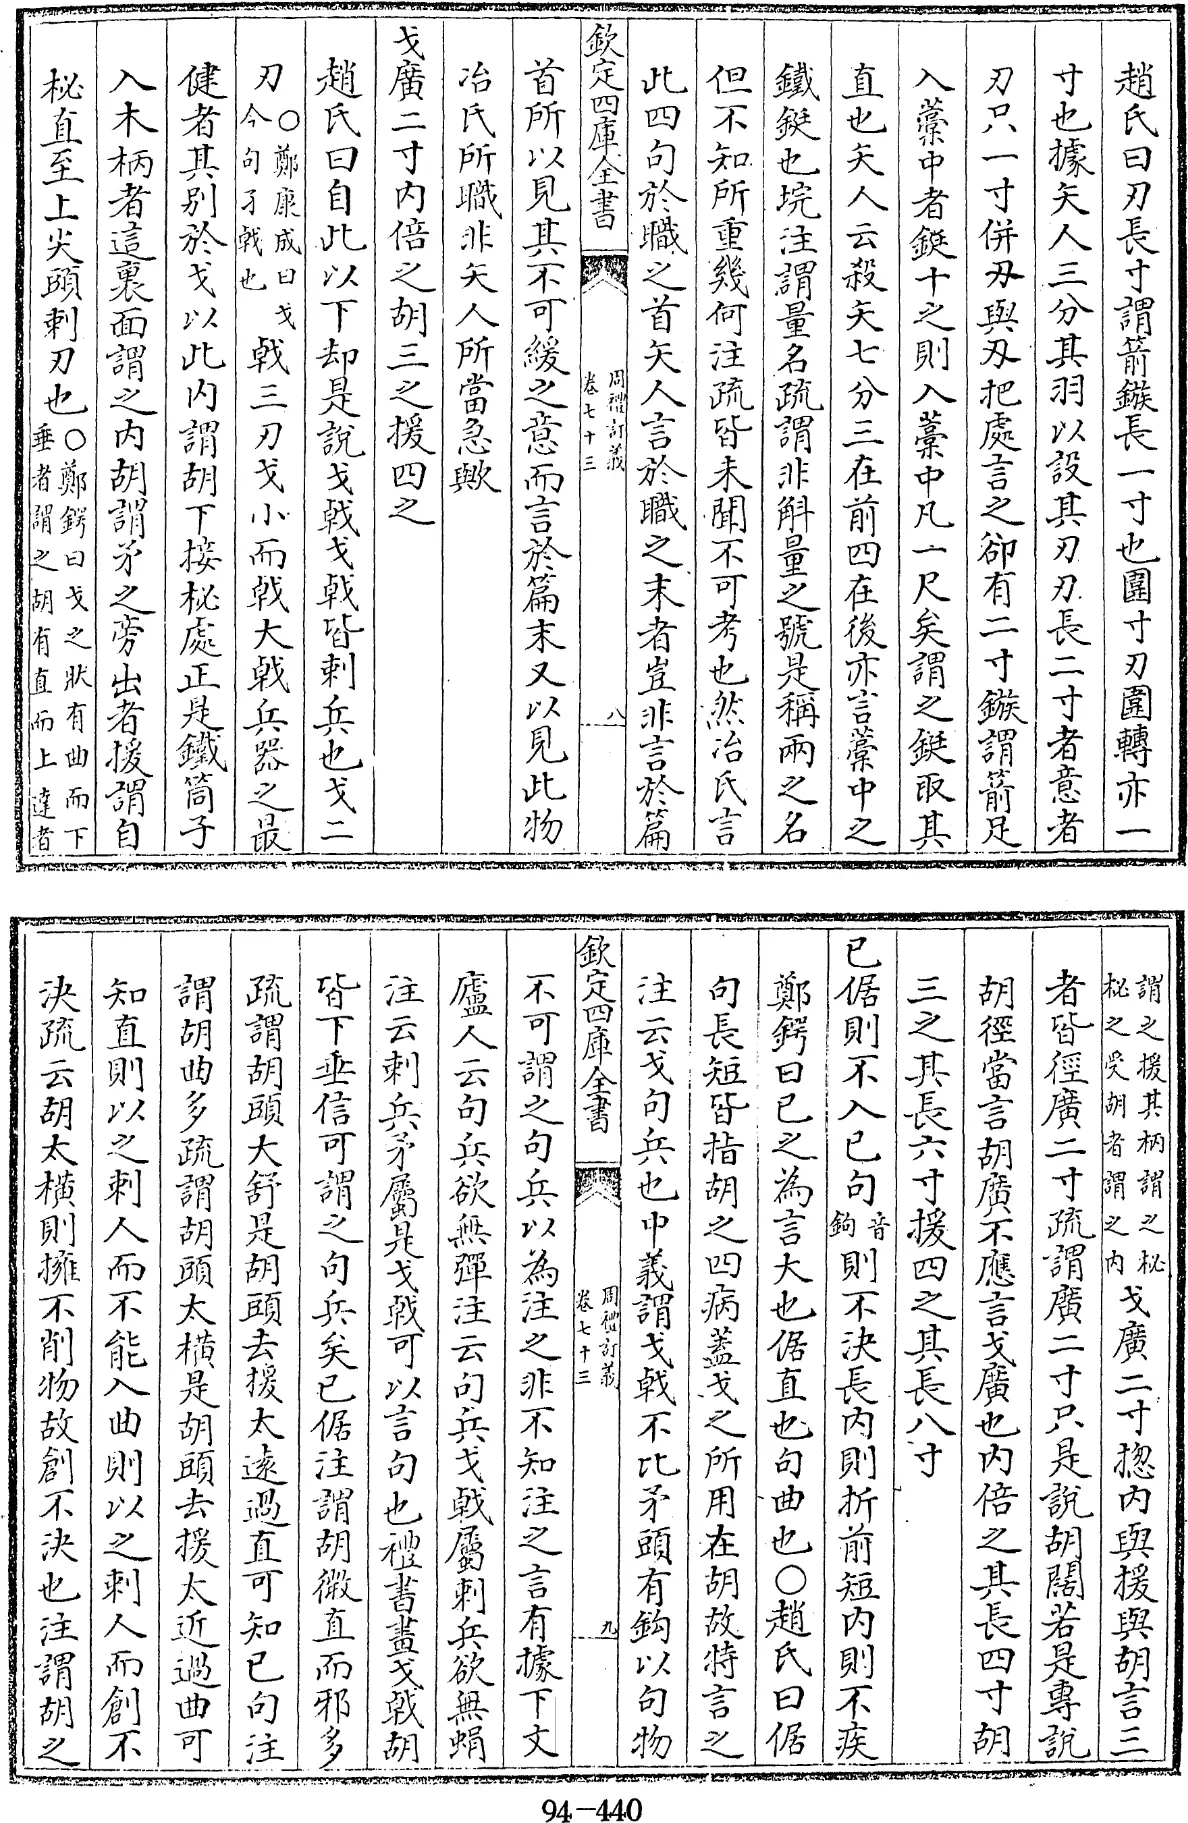 趙氏曰刃長寸謂箭鏃長一寸也圍寸刃圍轉亦一
寸也據矢人三分其羽以設其刃刃長二寸者意者
刃只一寸併刃與刃把處言之卻有二寸鏃謂箭足
入藁中者鋌十之則入藁中凡一尺矣謂之鋌取其
直也矢人云殺矢七分三在前四在後亦言藁中之
鐵鋌也垸注謂量名疏謂非斛量之號是稱兩之名
但不知所重幾何注疏皆未聞不可考也然冶氏言
此四句於職之首矢人言於職之末者豈非言於篇
欽定四庫全書
周禮訂義
卷七十三
八
首所以見其不可緩之意而言於篇末又以見此物
冶氏所職非矢人所當急歟
戈廣二寸內倍之胡三之援四之
趙氏曰自此以下却是說戈戟戈戟皆刺兵也戈二
刃○鄭康成曰戈今句孑戟也戟三刃戈小而戟大戟兵器之最
健者其別於戈以此內謂胡下接柲處正是鐵筒子
入木柄者這裏面謂之內胡謂矛之旁出者援謂自
柲直至上尖頭刺刃也○鄭鍔曰戈之狀有曲而下垂者謂之胡有直而上達者
謂之援其柄謂之柲柲之受胡者謂之內戈廣二寸揔內與援與胡言三
者皆徑廣二寸疏謂廣二寸只是說胡闊若是專說
胡徑當言胡廣不應言戈廣也內倍之其長四寸胡
三之其長六寸援四之其長八寸
已倨則不入已句音鉤則不決長內則折前短內則不疾
鄭鍔曰已之為言大也倨直也句曲也○趙氏曰倨
句長短皆指胡之四病蓋戈之所用在胡故特言之
注云戈句兵也中義謂戈戟不比矛頭有鈎以句物
欽定四庫全書
周禮訂義
卷七十三
九
不可謂之句兵以為注之非不知注之言有據下文
廬人云句兵欲無彈注云句兵戈戟屬刺兵欲無蜎
注云刺兵矛屬是戈戟可以言句也禮書畫戈戟胡
皆下垂信可謂之句兵矣已倨注謂胡微直而邪多
疏謂胡頭大舒是胡頭去援太遠過直可知已句注
謂胡曲多疏謂胡頭太橫是胡頭去援太近過曲可
知直則以之刺人而不能入曲則以之刺人而創不
決疏云胡太橫則擁不削物故創不決也注謂胡之
94-440